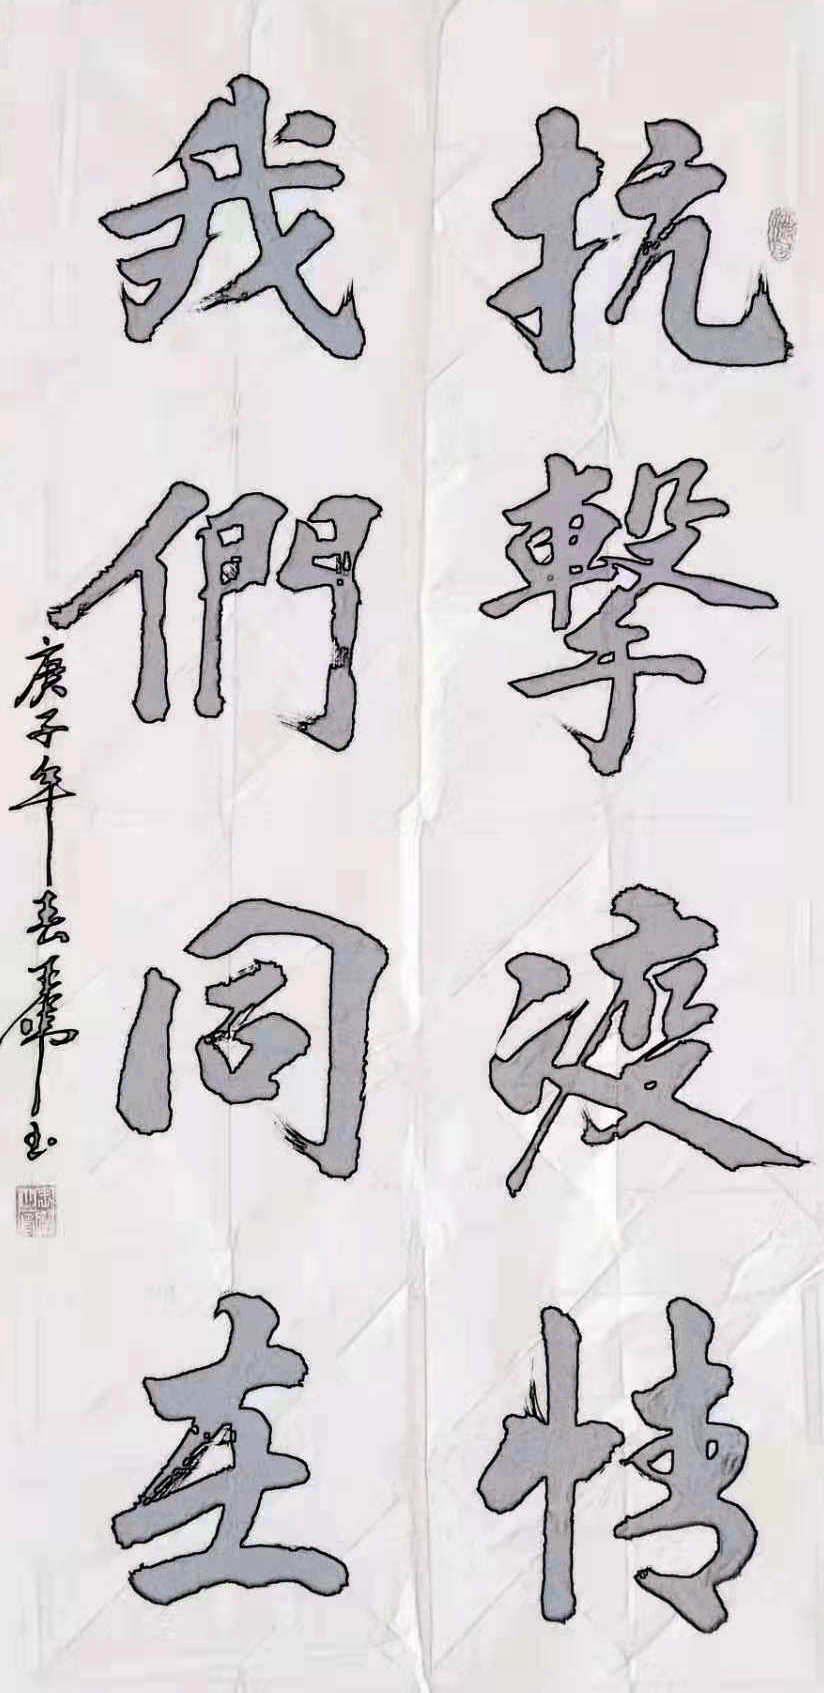 抗擊疫情
我們同在
庚子年春王书